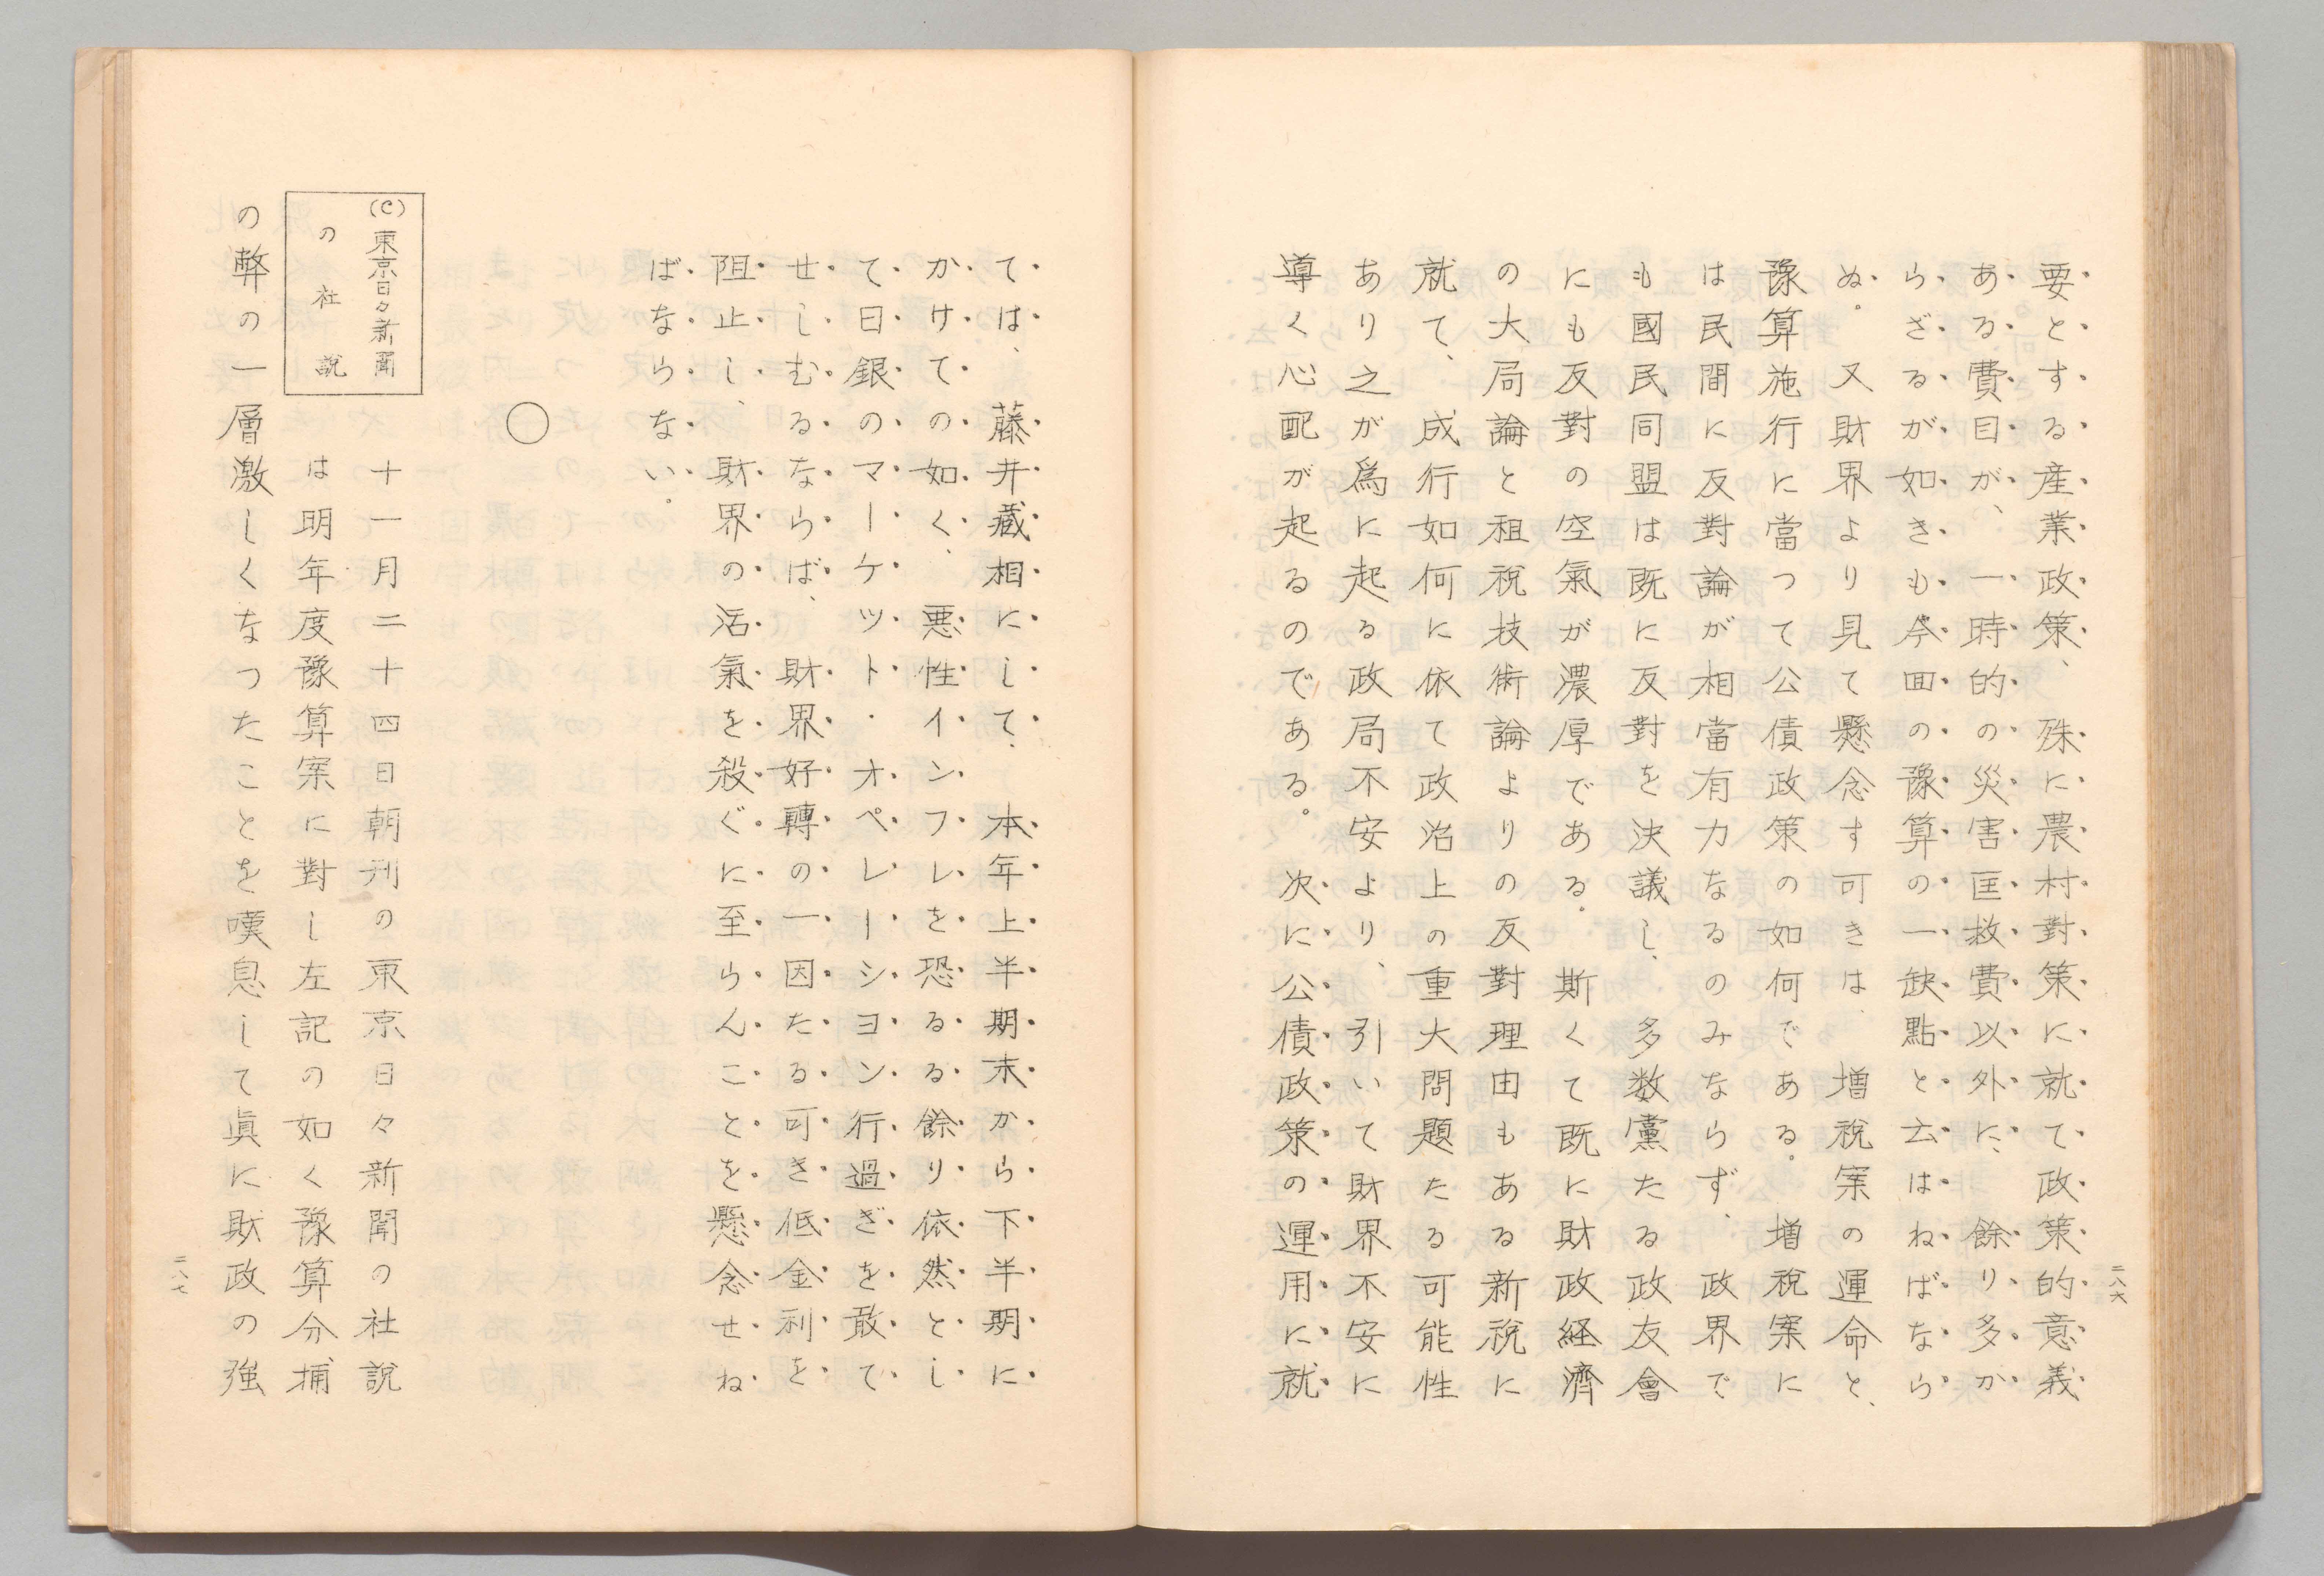 要とする産業政策、殊に農村對策に就て政策的意義
ある費目が、一時的の災害匡救費以外に、餘り多か
らざるが如きも今囬の豫算の一缺點と云はねばなら
ぬ。又財界より見て懸念す可きは、増税案の運命と、
豫算施行に當つて公債政策の如何である。増税案に
は民間に反對論が相當有力なるのみならず、政界で
も國民同盟は既に反對を決議し、多数黨たる政友會
にも反對の空氣が濃厚である。斯くて既に財政経濟
の大局論と租税技術論よりの反對理由もある新税に
就て、成行如何に依て政治上の重大問題たる可能性
あり之が爲に起る政局不安より、引いて財界不安に
導く心配が起るのである。次に公債政策の運用に就
二八六
ては、藤井藏相にして、本年上半期末から下半期に
かけての如く、悪性インフレを恐るる餘り依然とし
て日銀のマーケット・オペレーション行過ぎを敢て
せしむるならば、財界好轉の一因たる可き低金利を
阻止し、財界の活氣を殺ぐに至らんことを懸念せね
ばならない。
○
(C)東京日々新聞
の社説
十一月二十四日朝刊の東京日々新聞の社説
は明年度豫算案に對し左記の如く豫算分捕
の弊の一層激しくなつたことを嘆息して眞に財政の強
二八七